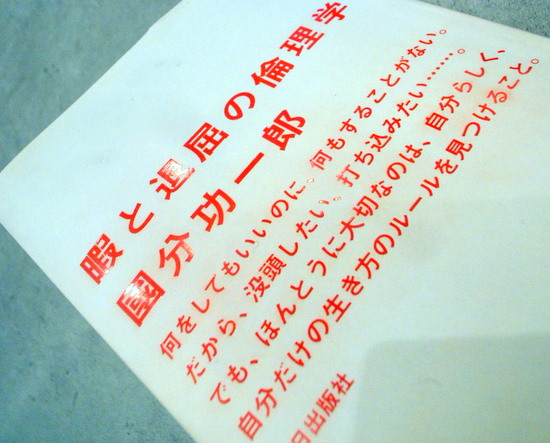 暇と退屈の倫理学
國分功一郎
何をしてもいいのに。何もすることがない。
だから、没頭したい。打ち込みたい……。
でも、ほんとうに大切なのは、自分らしく、
自分だけの生き方のルールを見つけること。
日出版社